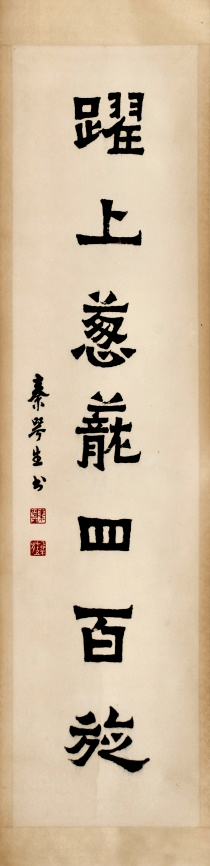 躍上蔥蘢四百旋
秦咢生书